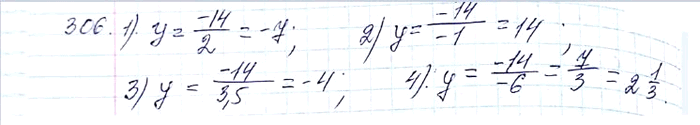 306. 1). y = -14/2 = -7; 2) y = -14/-1 = 14;
3) y = -14/3,5 = -4; 4). y = -14/-6 = 7/3 = 2 1/3.